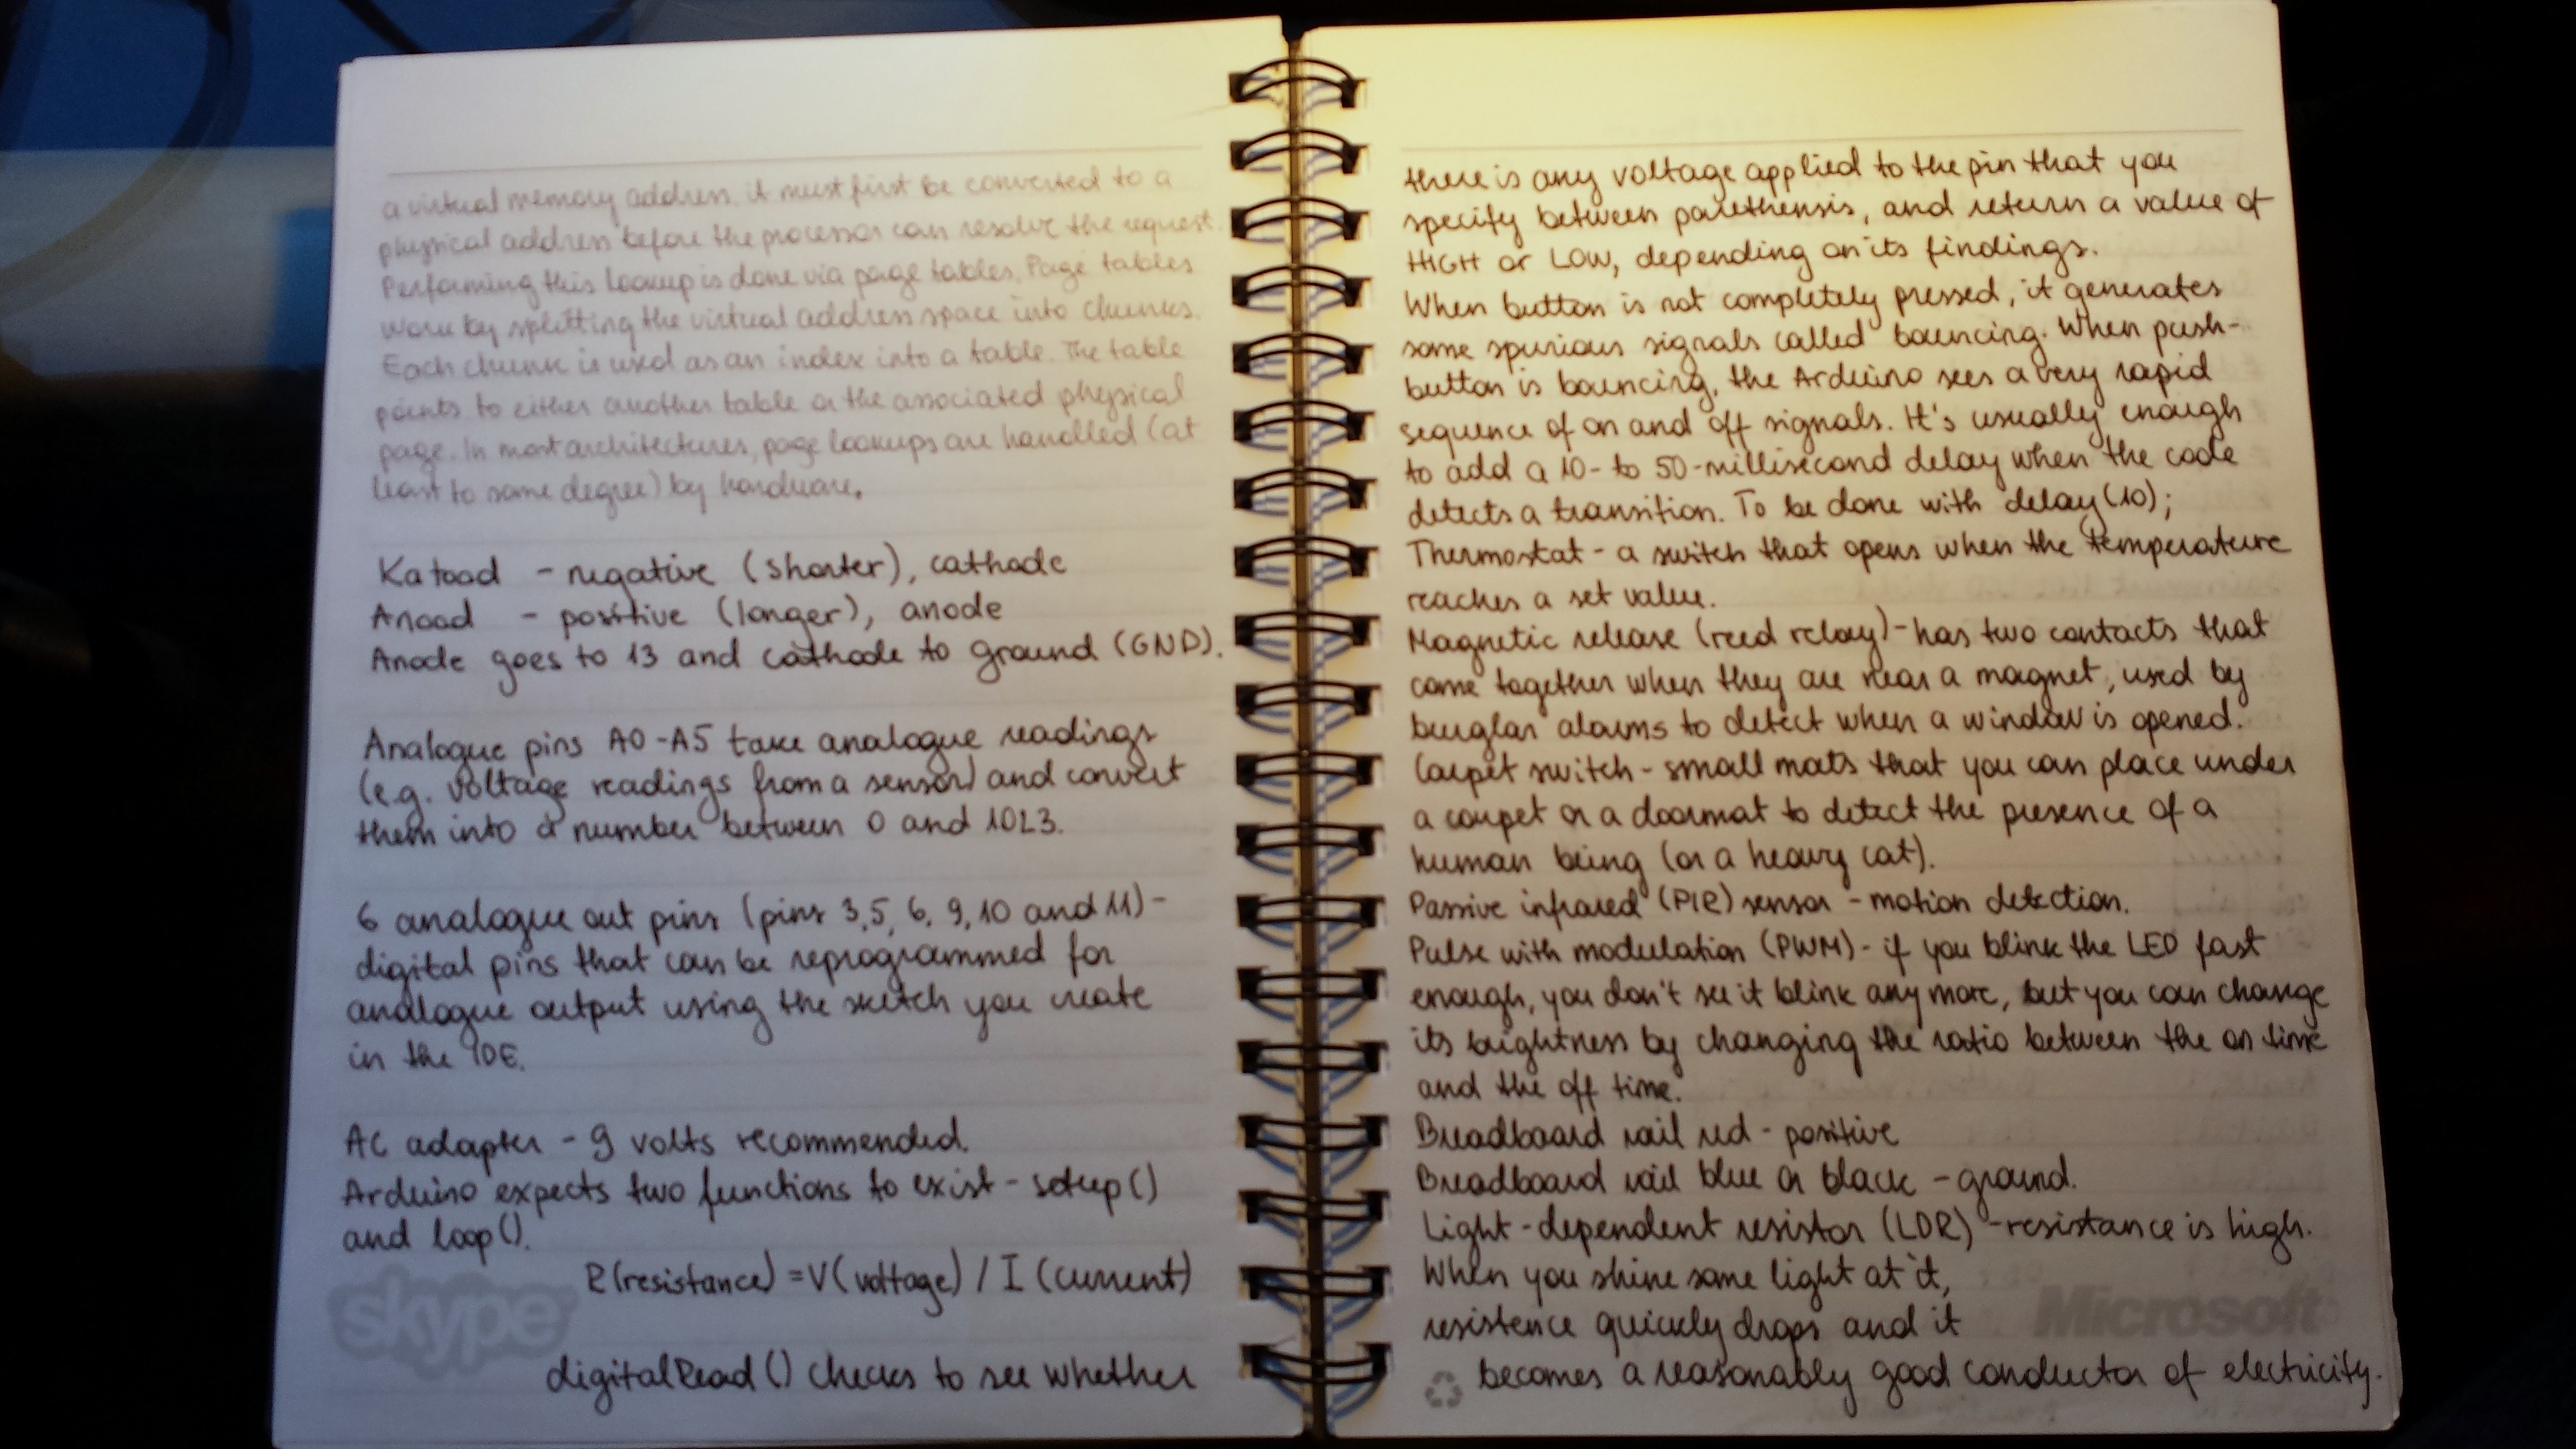 a virtual memory address, it must first be converted to a
physical address before the processor can resolve the request.
Performing this lookup is done via page tables. Page tables
work by splitting the virtual address space into chunks.
Each chunk is used as an index into a table. The table
points to either another table or the associated physical
page. In most architectures, page lookups are handled (at
least to some degree) by hardware.
Katood - negative (shorter), cathode
Anood - positive (longer), anode
Anode goes to 13 and cathode to ground (GND).
Analogue pins A0-A5 take analogue readings
(e.g. voltage readings from a sensor) and convert
them into a number between 0 and 1023.
6 analogue out pins (pins 3,5, 6, 9, 10 and 11) -
digital pins that can be reprogrammed for
analogue output using the sketch you create
in the IDE.
AC adapter - 9 volts recommended.
Arduino expects two functions to exist - setup()
and loop().
R(resistance) = V(voltage) / I (current)
skype
digitalRead () checks to see whether
there is any voltage applied to the pin that you
specify between parethensis, and return a value of
HIGH or LOW, depending on its findings.
When button is not completely pressed, it generates
some spurious signals called bouncing. When push-
button is bouncing, the Arduino sees a very rapid
sequence of on and off signals. It's usually enough
to add a 10- to 50-millisecond delay when the code
detects a transition. To be done with delay(10);
Thermostat - a switch that opens when the temperature
reaches a set value.
Magnetic release (reed relay) - has two contacts that
come together when they are near a magnet, used by
burglar alarms to detect when a window is opened.
Carpet switch - small mats that you can place under
a carpet or a doormat to detect the presence of a
human being (or a heavy cat).
Passive infrared (PIR) sensor - motion detection.
Pulse with modulation (PWM) - if you blink the LED fast
enough, you don't see it blink any more, but you can change
its brightness by changing the ratio between the on time
and the off time.
Breadboard rail red - positive
Breadboard rail blue or black - ground.
Light-dependent resistor (LDR) - resistance is high.
When you shine some light at it,
resistence quickly drops and it
Microsoft
becomes a reasonably good conductor of electricity.